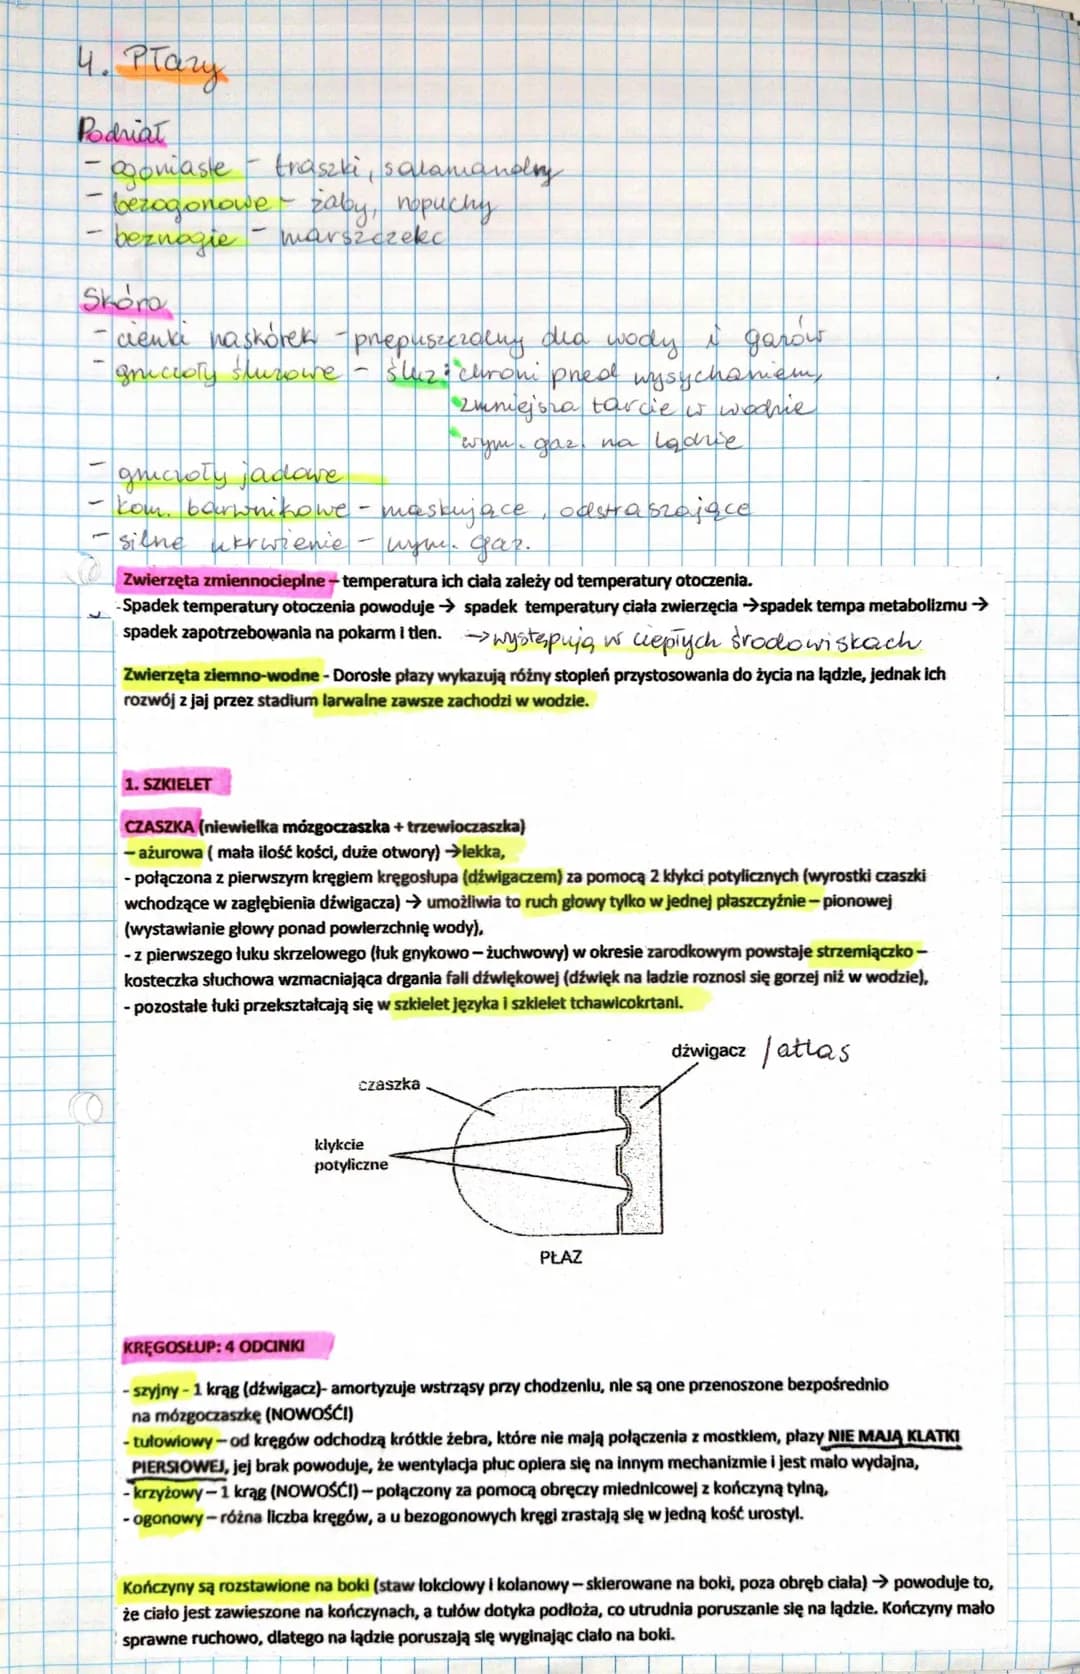 4. Płazy
Podział
- ogoniaste - traszki, salamandry
- bezogonowe - żaby, ropuchy
- beznogie - marszczelc
Skóra
- cienki naskórek - przepuszczalny dla wody i gazów
- gruczoły śluzowe - śluz: chroni przed wysychaniem,
zmniejsza tarcie w wodzie
wym. gaz. na lądzie
- gruczoły jadowe
- kom. barwnikowe - maskujące, odstraszające
- silne ukrwienie - wym. gaz.
Zwierzęta zmiennocieplne – temperatura ich ciała zależy od temperatury otoczenia.
-Spadek temperatury otoczenia powoduje → spadek temperatury ciała zwierzęcia →spadek tempa metabolizmu →
spadek zapotrzebowania na pokarm i tlen. → występują w ciepłych środowiskach
Zwierzęta ziemno-wodne - Dorosłe płazy wykazują różny stopień przystosowania do życia na lądzie, jednak ich
rozwój z jaj przez stadium larwalne zawsze zachodzi w wodzie.
1. SZKIELET
CZASZKA (niewielka mózgoczaszka + trzewioczaszka)
– ażurowa ( mała ilość kości, duże otwory) →lekka,
- połączona z pierwszym kręgiem kręgosłupa (dźwigaczem) za pomocą 2 kłykci potylicznych (wyrostki czaszki
wchodzące w zagłębienia dźwigacza) → umożliwia to ruch głowy tylko w jednej płaszczyźnie – pionowej
(wystawianie głowy ponad powierzchnię wody),
- z pierwszego łuku skrzelowego (łuk gnykowo – żuchwowy) w okresie zarodkowym powstaje strzemiączko –
kosteczka słuchowa wzmacniająca drgania fali dźwiękowej (dźwięk na ladzie roznosi się gorzej niż w wodzie),
- pozostałe łuki przekształcają się w szkielet języka i szkielet tchawicokrtani.
dźwigacz /atlas
czaszka
kłykcie
potyliczne
PŁAZ
KRĘGOSŁUP: 4 ODCINKI
- szyjny - 1 krąg (dźwigacz)- amortyzuje wstrząsy przy chodzeniu, nie są one przenoszone bezpośrednio
na mózgoczaszkę (NOWOŚĆ!)
- tułowiowy – od kręgów odchodzą krótkie żebra, które nie mają połączenia z mostkiem, płazy NIE MAJĄ KLATKI
PIERSIOWEJ, jej brak powoduje, że wentylacja płuc opiera się na innym mechanizmie i jest mało wydajna,
- krzyżowy – 1 krąg (NOWOŚĆ!) – połączony za pomocą obręczy miednicowej z kończyną tylną,
- ogonowy – różna liczba kręgów, a u bezogonowych kręgi zrastają się w jedną kość urostyl.
Kończyny są rozstawione na boki (staw łokciowy i kolanowy – skierowane na boki, poza obręb ciała) → powoduje to,
że ciało jest zawieszone na kończynach, a tułów dotyka podłoża, co utrudnia poruszanie się na lądzie. Kończyny mało
sprawne ruchowo, dlatego na lądzie poruszają się wyginając ciało na boki.